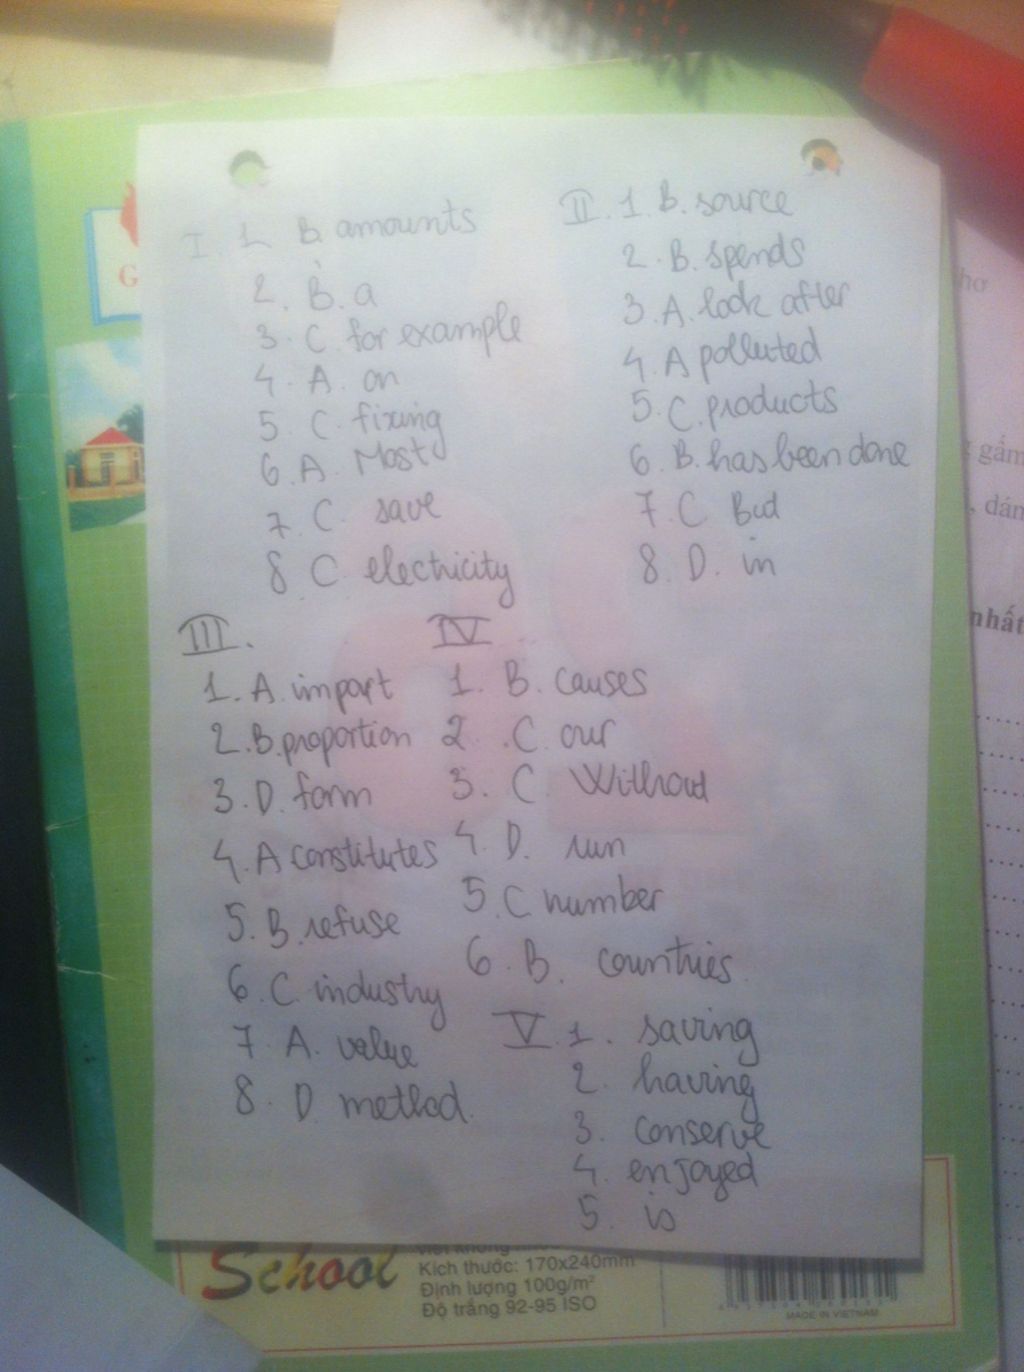 I. 1 B. amounts
2. B. a
3. C. for example
4. A. on
5. C. fixing
6. A. Most
7. C. save
8 C. electricity
II. 1. B. source
2. B. spends
3. A. look after
4. A polluted
5. C. products
6. B. has been done
7. C. But
8. D. in
III.
1. A. import
2. B. proportion
3. D. form
4. A constitutes
5. B. refuse
6. C. industry
7. A. value
8. D method.
IV
1. B. causes
2. C. our
3. C. Without
4. D. run
5. C number
6. B. countries.
V. 1. saving
2. having
3. conserve
4. enjoyed
5. is
G
gắm
, dán
nhất
School
Kích thước: 170x240mm
Định lượng 100g/m²
Độ trắng 92-95 ISO
MADE IN VIETNAM